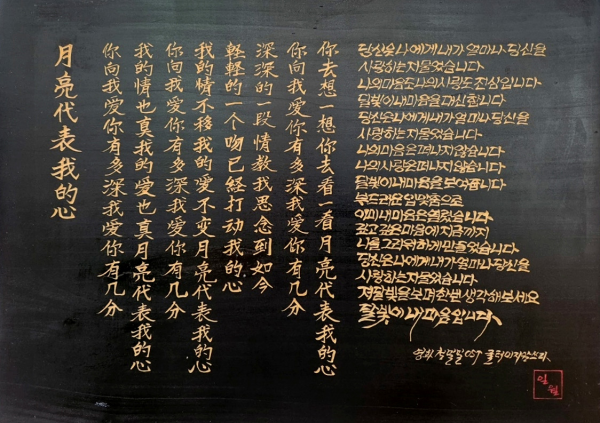 月亮代表我的心
你向我爱你有多深我爱你有几分
我的情也真我的爱也真月亮代表我的心
你向我爱你有多深我爱你有几分
我的情不移我的爱不变月亮代表我的心
轻轻的一个吻已经打动我的心
深深的一段情教我思念到如今
你向我爱你有多深我爱你有几分
你去想一想你去看一看月亮代表我的心
당신은 나에게 내가 얼마나 당신을
사랑하는지 물었습니다
나의 마음도 나의 사랑도 진심입니다
달빛이 내 마음을 대신합니다
당신은 나에게 내가 얼마나 당신을
사랑하는지 물었습니다
나의 마음은 떠나지 않습니다
나의 사랑은 떠나지 않습니다
달빛이 내 마음을 보여줍니다
부드러운 입맞춤으로
이미 내 마음은 열렸습니다
깊고 깊은 마음에 지금까지
나를 그리워하게 만들었습니다
당신은 나에게 내가 얼마나 당신을
사랑하는지 물었습니다
저 달빛을 보며 한번 생각해 보세요
달빛이 내 마음입니다
영화 첨밀밀 OST
일월